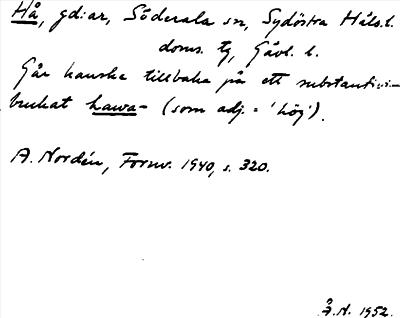 Hå, gdiar, Söderala sn, Sydöstra Häls. l.
doms. tg, Gävl. l.
Går kanske tillbaka på ett substantivi-
brukat hawa- (som adj. = 'hög').
A. Nordén, Fornv. 1940, s. 320.
Å.N. 1952.